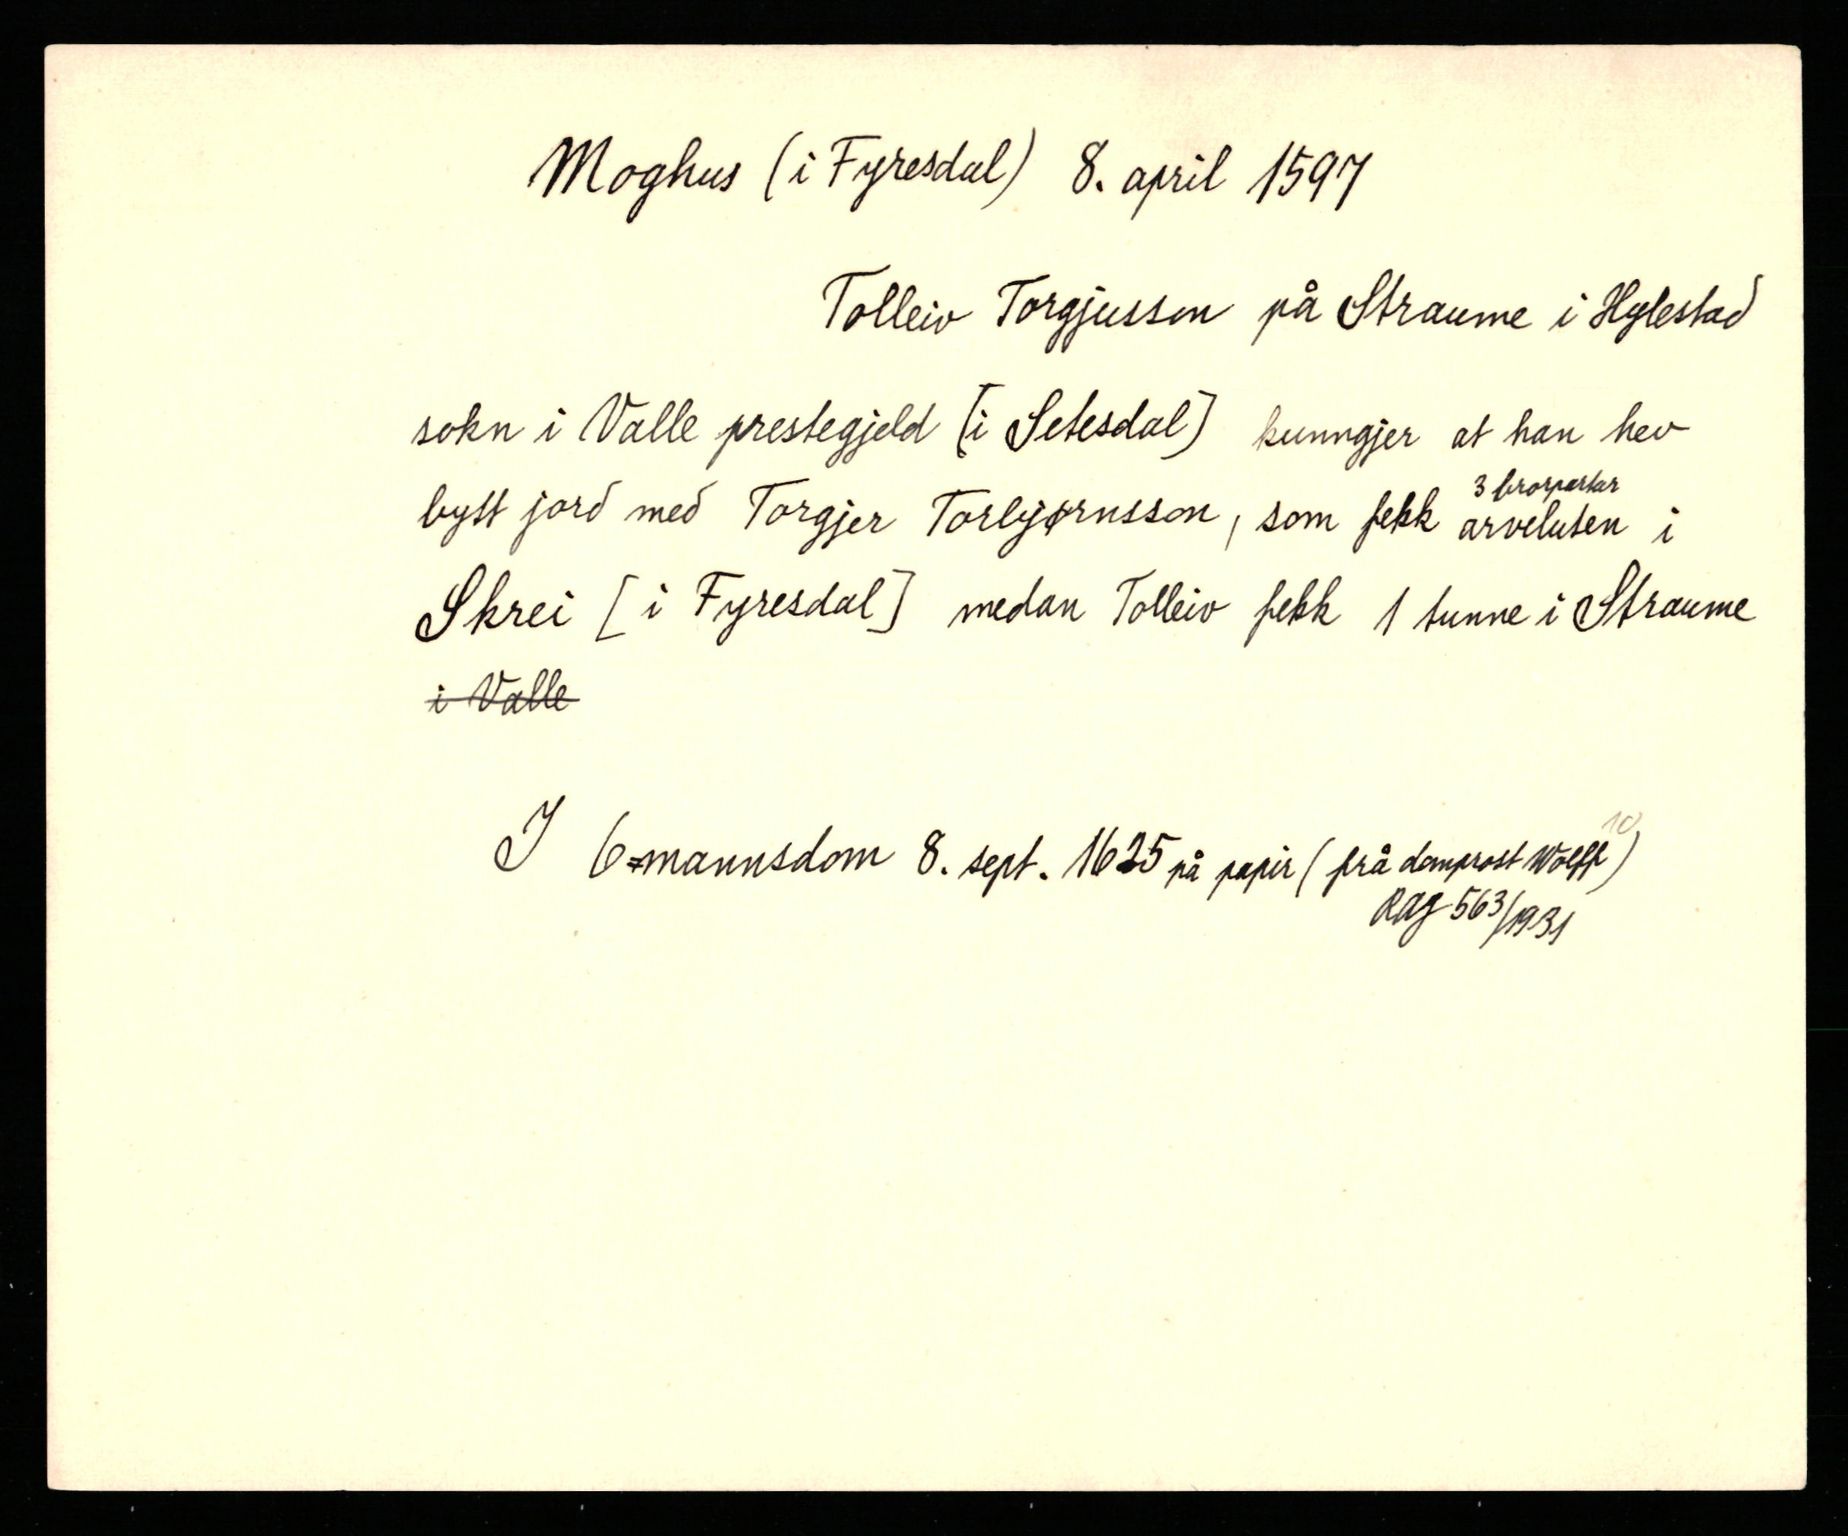 Moghus (i Fyresdal) 8. april 1597
Tolleiv Torgjusson på Straume i Hylestad
sokn i Valle prestegjeld [i Setesdal] kunngjer at han hev
bytt jord med Torgjer Torbjørnsson, som fekk arveluten i
3 brorpartar
Skrei [i Fyresdal] medan Tolleiv fekk 1 tunne i Straume
i Valle
I 6-mannsdom 8. sept. 1625 på papir (frå domprost Wolff)
10
RAJ 563/1931